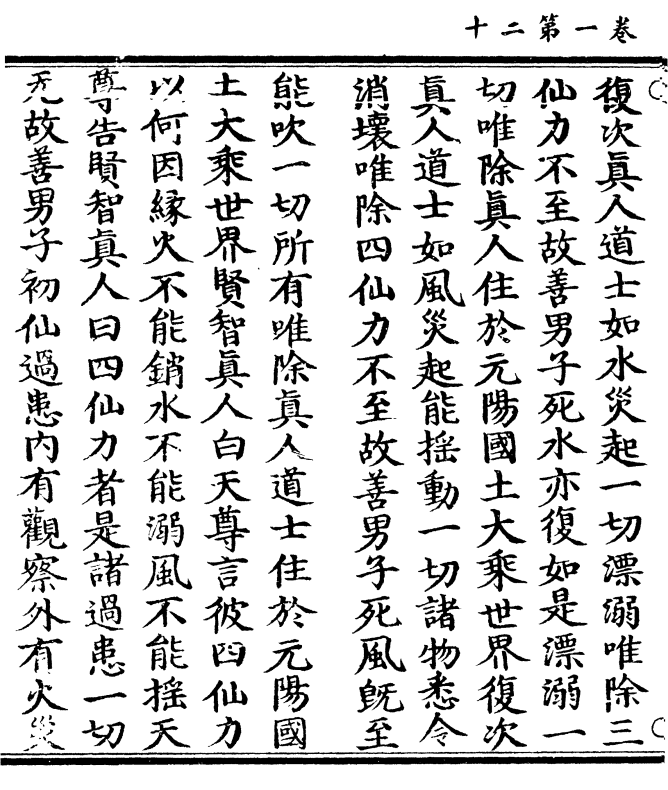 十二第一卷
復次眞人道士如水災起一切漂溺唯除三
仙力不至故善男子死水亦復如是漂溺一
切唯除眞人住於元陽國土大乘世界復次
眞人道士如風災起能摇動一切諸物悉令
消壞唯除四仙力不至故善男子死風旣至
能吹一切所有唯除眞人道士住於元陽國
土大乘世界賢智眞人白天尊言彼四仙力
以何因緣火不能銷水不能溺風不能摇天
尊告賢智眞人曰四仙力者是諸過患一切
无故善男子初仙過患内有觀察外有火災